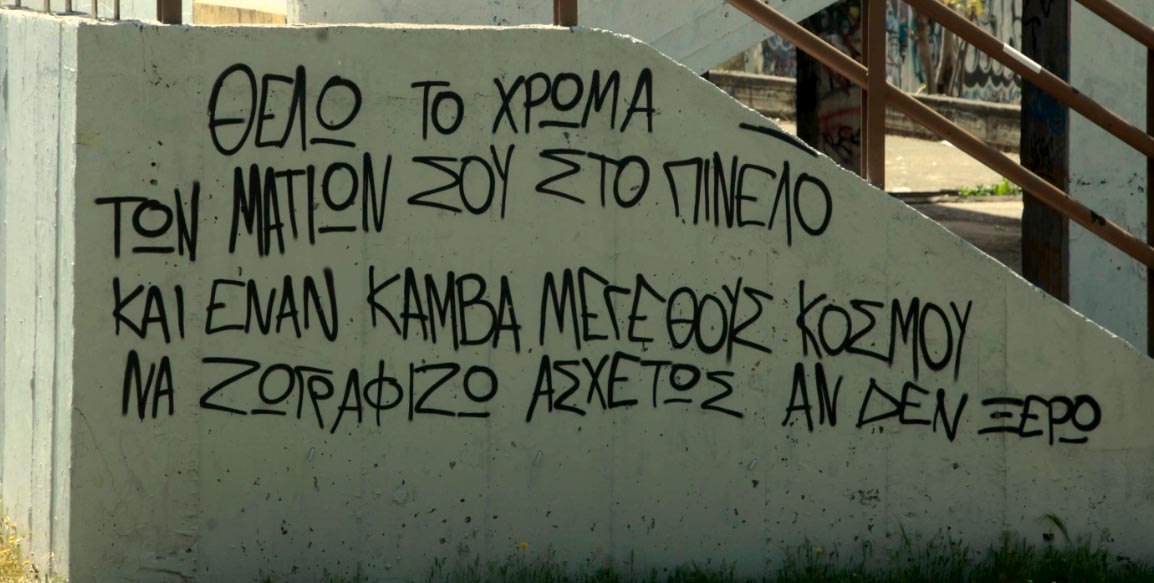 ΘΕΛΩ ΤΟ ΧΡΩΜΑ
ΤΩΝ ΜΑΤΙΩΝ ΣΟΥ ΣΤΟ ΠΙΝΕΛΟ
ΚΑΙ ΕΝΑΝ ΚΑΜΒΑ ΜΕΓΕΘΟΥΣ ΚΟΣΜΟΥ
ΝΑ ΖΩΓΡΑΦΙΖΩ ΑΣΧΕΤΩΣ ΑΝ ΔΕΝ ΞΕΡΩ